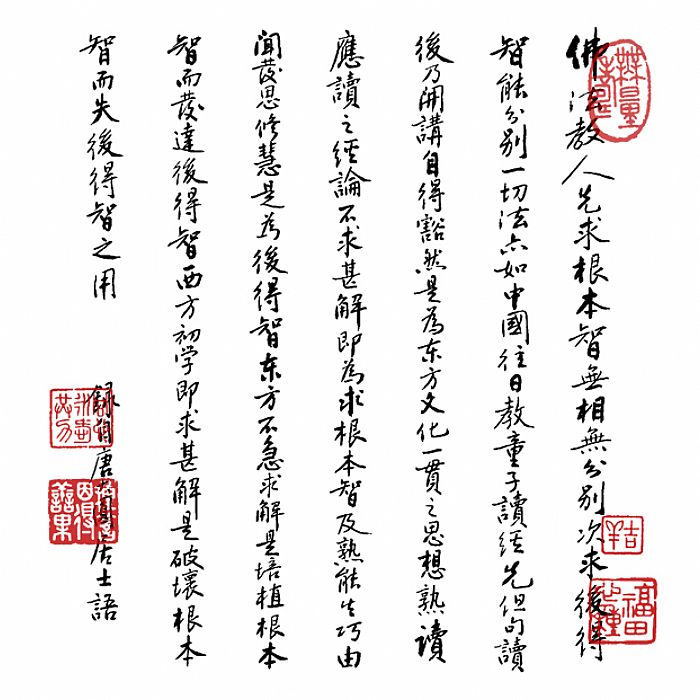 佛法教人先求根本智無相無分別次求後得
智能分別一切法亦如中國往日教童子讀經先但句讀
後乃開講自得豁然是為东方文化一貫之思想熟讀
應讀之經論不求甚解即為求根本智及熟能生巧由
聞發思修慧是為後得智东方不急求解是培植根本
智而發達後得智西方初学即求甚解是破壞根本
智而失後得智之用
錄自唐圓居士語
無量壽
吉羊
福田心種